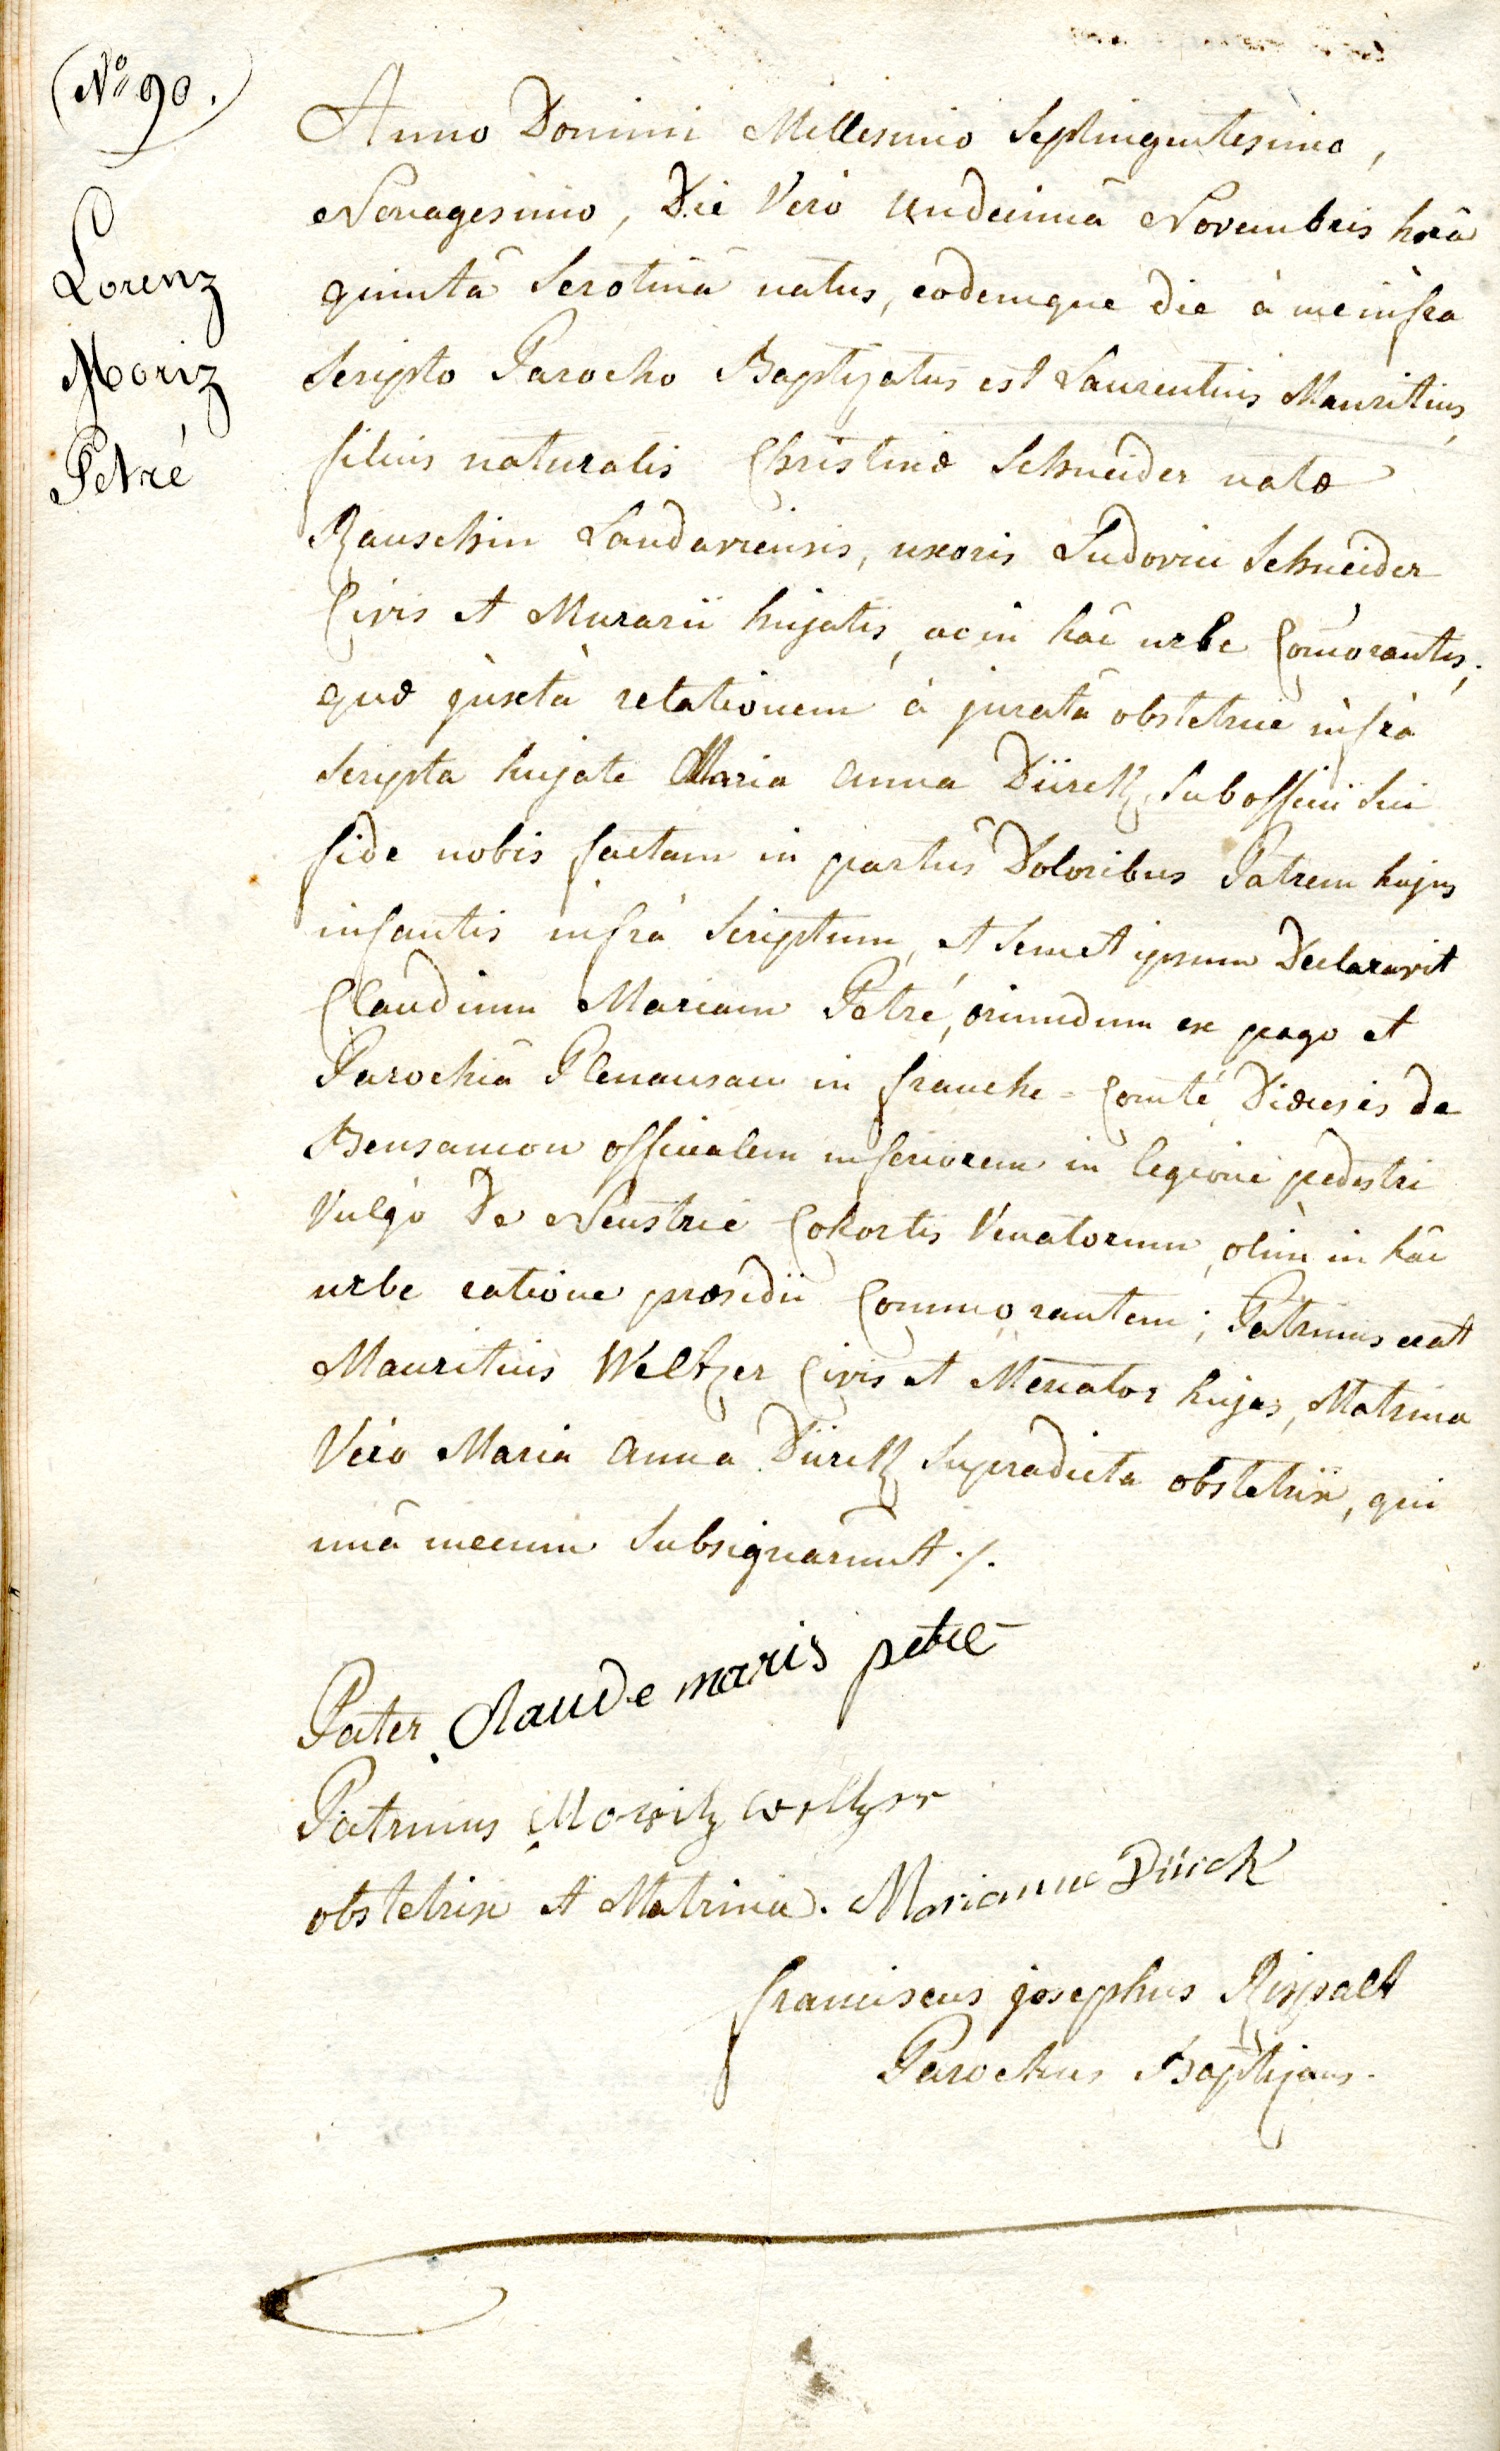 Nº 90.
Lorenz
Moriz
Petré
Anno Domini Millesimo Septingentesimo,
Nonagesimo, Die Vero undecimâ Novembris horâ
quintâ Serotinâ natus, eodemque die à me infra
Scripto Parocho Baptizatus est Laurentius Mauritius,
filius naturalis Christinæ Schneider natæ
Rauschin Landaviensis, uxoris Ludovici Schneider
Civis et Murarii hujatis, ac in hâc urbe Comorantis;
quæ juxtà relationem à juratâ obstetrice infrà
Scripta hujate Maria Anna Dürck, Sub officii Sui
fide nobis factam in partûs Doloribus Patrem hujus
infantis infrà Scriptum, et Semet ipsum Declaravit
Claudium Mariam Petré, oriundum ex pago et
Parochiâ Plenansau in franche-Comté Diœcesis de
Bensancon officialem inferiorem in legione pedestri
Vulgò De Neustrie Cohortis Venatorum, olim in hâc
urbe ratione præsidii Commorantem; Patrinus erat
Mauritius Weltzer Civis et Mercator hujas, Matrina
Vero Maria Anna Dürck Supradicta obstetrix, qui
unâ mecum Subsignarunt ./.
Pater Claude maris petre
Patrinus Moritz Weltzer
obstetrix et Matrina. Marianna Dürck
franciscus josephus Rippalt
Parochus Baptizans.